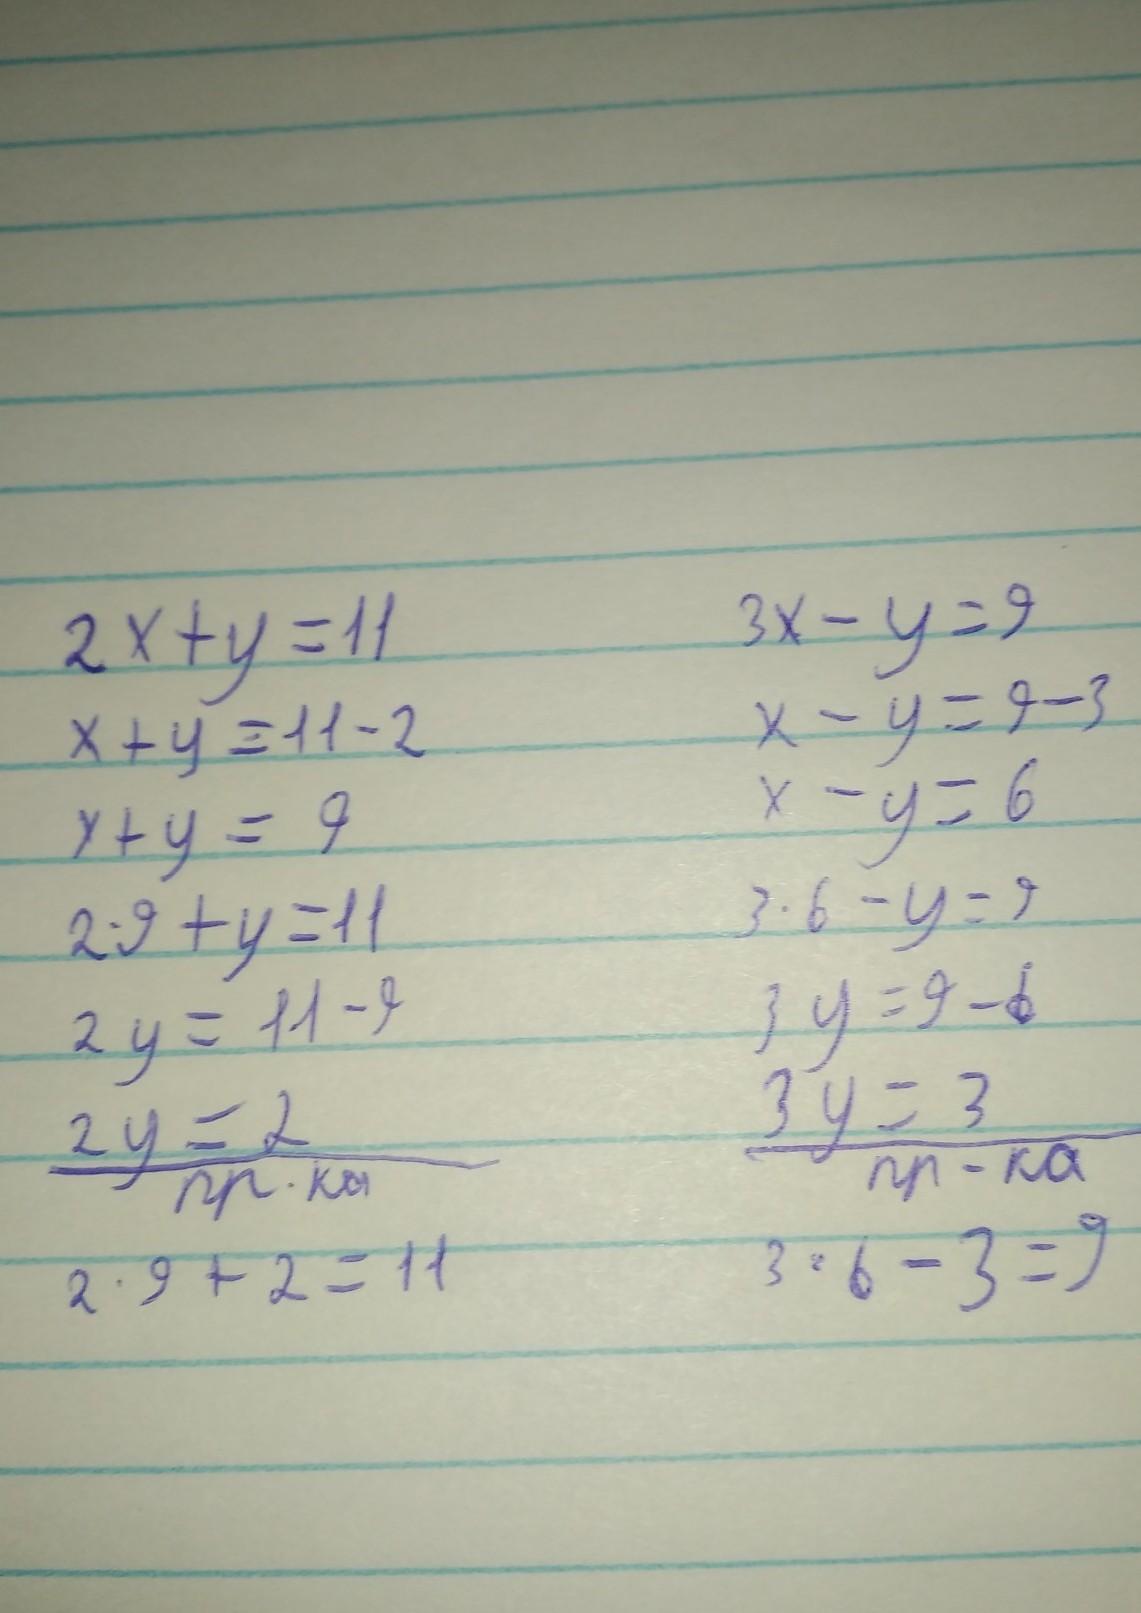 2x+y=11
x+y=11-2
x+y= 9
2·9+y=11
2y= 11-9
2y=2
пр-ка
2·9+2=11
3x-y=9
x-y=9-3
x-y=6
3·6-y=9
3y=9-6
3y=3
пр-ка
3·6-3=9